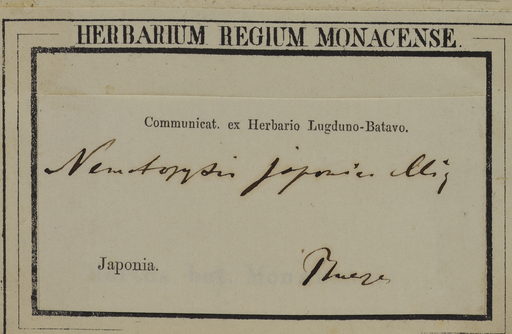 HERBARIUM REGIUM MONACENSE.
Communicat. ex Herbario Lugduno-Batavo.
Nematopyxis japonica Miq
Japonia.